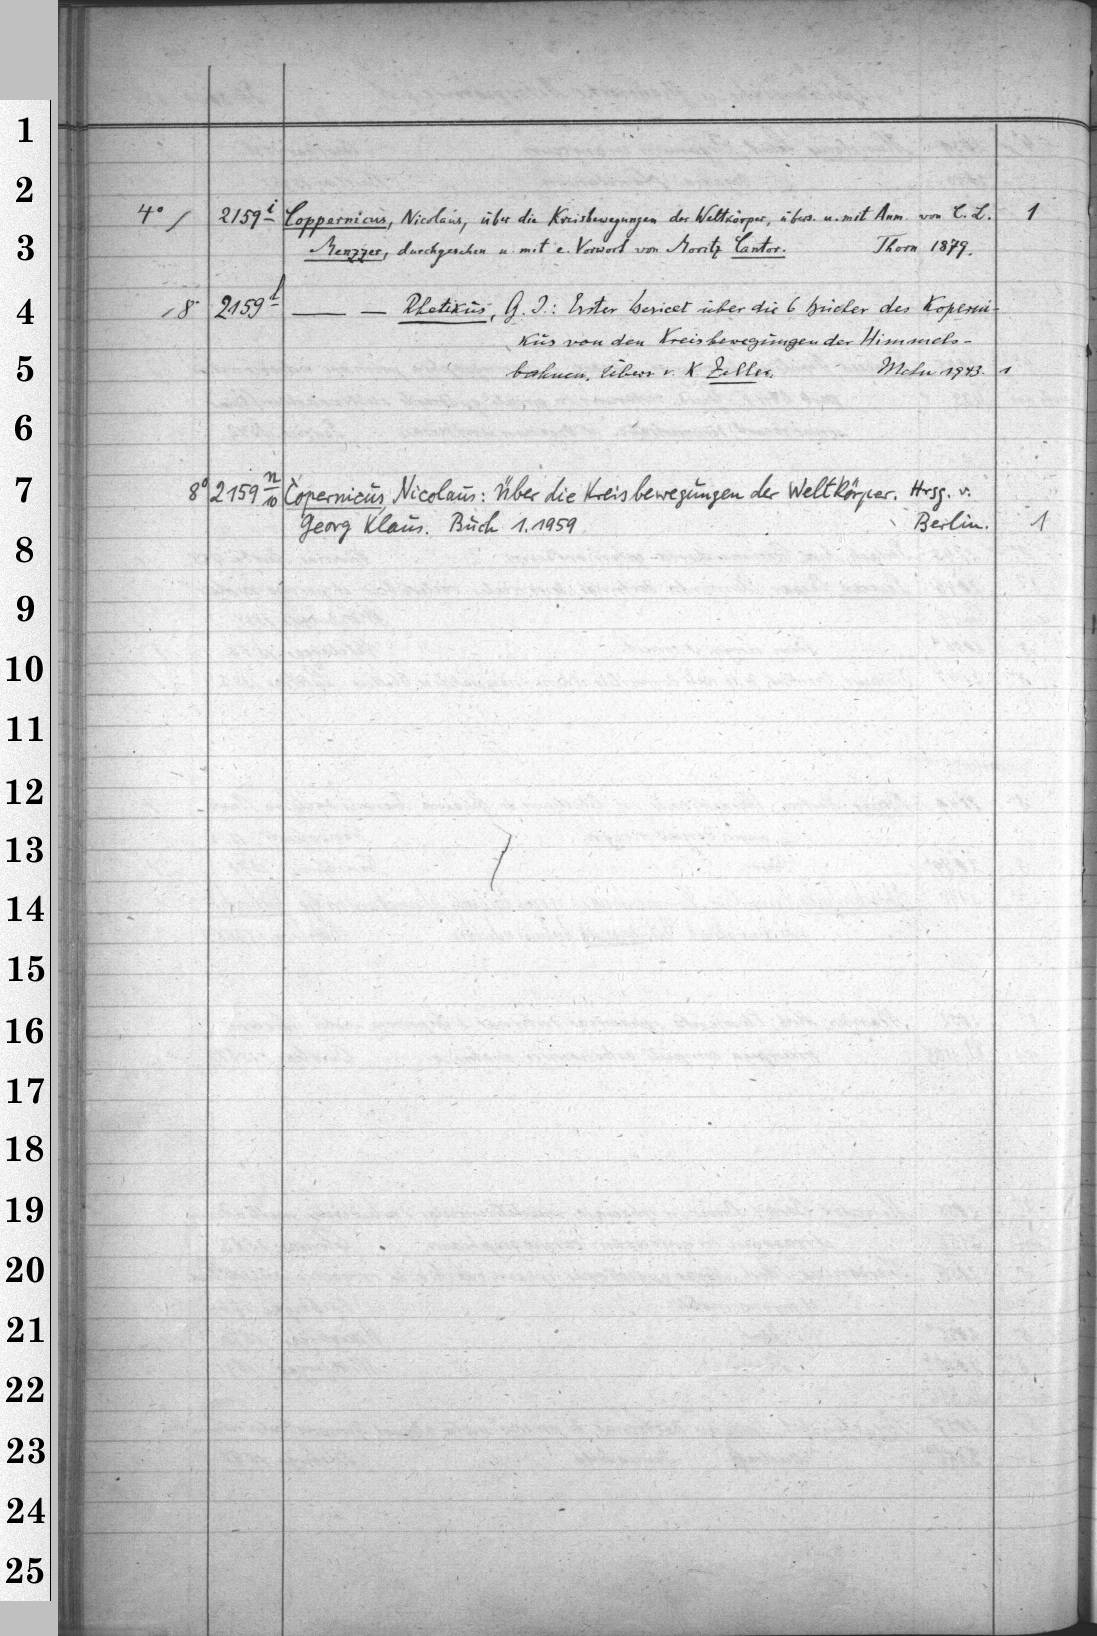 1
2
4° / 2159 i Coppernicus, Nicolaus, über die Kreisbewegungen der Weltkörper, übers. u. mit Anm. von C. L. 1
3
Menzzer, durchgesehen u. mit e. Vorwort von Moritz Cantor. Thorn 1879.
4
/8° 2159 l —— — Rhetikus, G. J.: Erster Bericht über die 6 Bücher des Koperni-
kus von den Kreisbewegungen der Himmels-
5
bahnen. Übers. v. K Zeller. Mchn 1943. 1
6
7
8° 2159 n/10 Copernicus, Nicolaus: Über die Kreisbewegungen der Weltkörper. Hrsg. v.
Georg Klaus. Buch 1. 1959 Berlin. 1
8
9
10
11
12
13
14
15
16
17
18
19
20
21
22
23
24
25